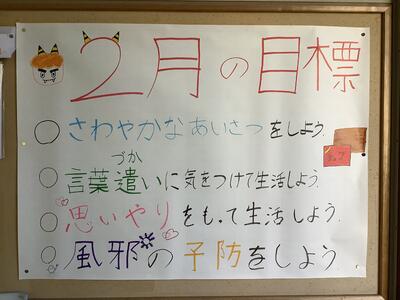 2月の目標
○さわやかなあいさつをしよう.
づか
○言葉遣いに気をつけて生活しよう.
○思いやりをもって生活しよう.
○風邪の予防をしよう